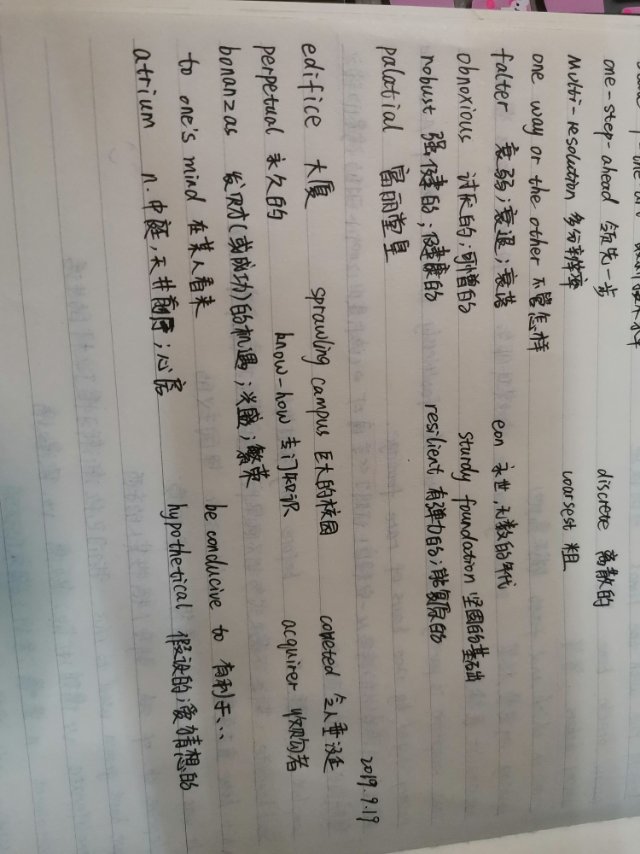 one-step-ahead 领先一步 discrete 离散的
Multi-resolution 多分辨率 coarsest 粗
one way or the other 不管怎样
falter 衰弱;衰退;衰落 eon 永世,无数的年代
obnoxious 讨厌的;可憎的 sturdy foundation 坚固的基础
robust 强健的;健康的 resilient 有弹力的;能复原的
palatial 富丽堂皇
2019.9.19
edifice 大厦 sprawling campus 巨大的校园 coveted 令人垂涎
perpetual 永久的 know-how 专门知识 acquirer 收购者
bonanzas 发财(或成功)的机遇;兴盛;繁荣
to one's mind 在某人看来 be conducive to 有利于...
atrium n.中庭,天井 ;心房 hypothetical 假设的;爱猜想的